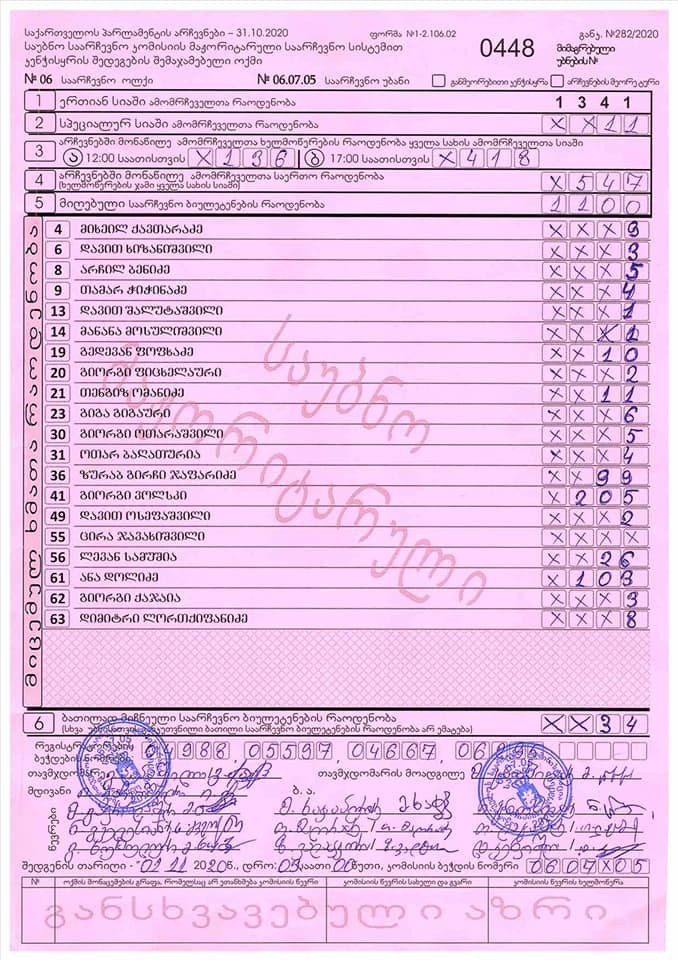 საქართველოს პარლამენტის არჩევნები – 31.10.2020 ფორმა №1-2.106.02 განკ. №282/2020
საუბნო საარჩევნო კომისიის მაჟორიტარული საარჩევნო სისტემით 0448 მიმაგრებული
კენჭისყრის შედეგების შემაჯამებელი ოქმი უბნების №
№ 06 საარჩევნო ოლქი № 06.07.05 საარჩევნო უბანი განმეორებითი კენჭისყრა არჩევნების მეორე ტური
1 ერთიან სიაში ამომრჩეველთა რაოდენობა 1 3 4 1
2 სპეციალურ სიაში ამომრჩეველთა რაოდენობა X X 1 1
3 არჩევნებში მონაწილე ამომრჩეველთა ხელმოწერების რაოდენობა ყველა სახის ამომრჩეველთა სიაში
ა 12:00 საათისთვის X 1 3 6 ბ 17:00 საათისთვის X 4 1 8
4 არჩევნებში მონაწილე ამომრჩეველთა საერთო რაოდენობა X 5 4 7
(ხელმოწერების ჯამი ყველა სახის სიაში)
5 მიღებული საარჩევნო ბიულეტენების რაოდენობა 1 1 0 0
მიცემულ ხმათა რაოდენობა
4 მიხეილ ქავთარაძე X X X 9
6 დავით ხიზანიშვილი X X X 3
8 არჩილ ბენიძე X X X 5
9 თამარ ჭიჭინაძე X X X 4
13 დავით შალუტაშვილი X X X 1
14 მანანა მოსულიშვილი X X X 1
19 გედევან ფოფხაძე X X 1 0
20 გიორგი ფიცხელაური X X X 2
21 თენგიზ ომანიძე X X 1 1
23 გიგა გიგაური X X X 6
30 გიორგი ოთარაშვილი X X X 5
31 ოთარ ბაღათურია X X X 4
36 ზურაბ გირჩი ჯაფარიძე X X 9 9
41 გიორგი ვოლსკი X 2 0 5
49 დავით ოსეფაშვილი X X X 2
55 ცირა ჯავახიშვილი X X X X
56 ლევან სამუშია X X 2 6
61 ანა დოლიძე X 1 0 3
62 გიორგი ქაჯაია X X X 3
63 დიმიტრი ლორთქიფანიძე X X X 8
საუბნო
მაჟორიტარული
6 ბათილად მიჩნეული საარჩევნო ბიულეტენების რაოდენობა X X 3 4
რეგისტრატორების 04988 05597 04667
ბეჭდების ნომრები
თავმჯდომარე თავმჯდომარის მოადგილე
მდივანი ბ. ა.
წევრები
შედგენის თარიღი - 01 11 2020წ., დრო: 03 საათი 00 წუთი, კომისიის ბეჭდის ნომერი 060705
№ ოქმის მონაცემების გრაფა, რომელსაც არ ეთანხმება კომისიის წევრი კომისიის წევრის სახელი და გვარი კომისიის წევრის ხელმოწერა
განსხვავებული აზრი